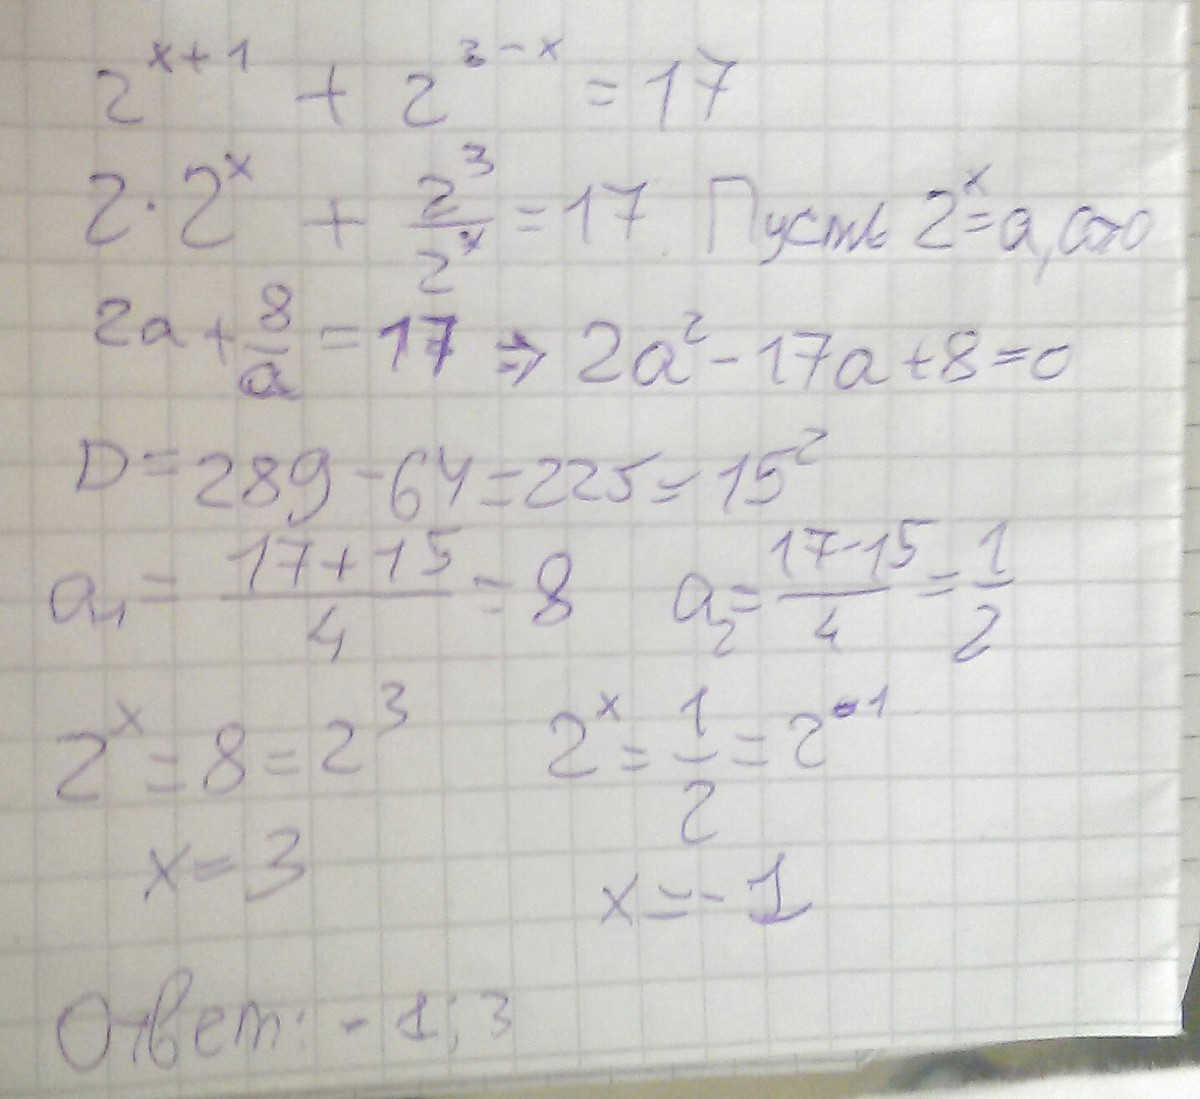 2^(x+1) + 2^(3-x) = 17
2·2^x + 2^3/2^x = 17. Пусть 2^x = a, a>0
2a + 8/a = 17 ⇒ 2a² - 17a + 8 = 0
D = 289 - 64 = 225 = 15²
a₁ = (17+15)/4 = 8 a₂ = (17-15)/4 = 1/2
2^x = 8 = 2^3 2^x = 1/2 = 2^-1
x = 3 x = -1
Ответ: -1; 3